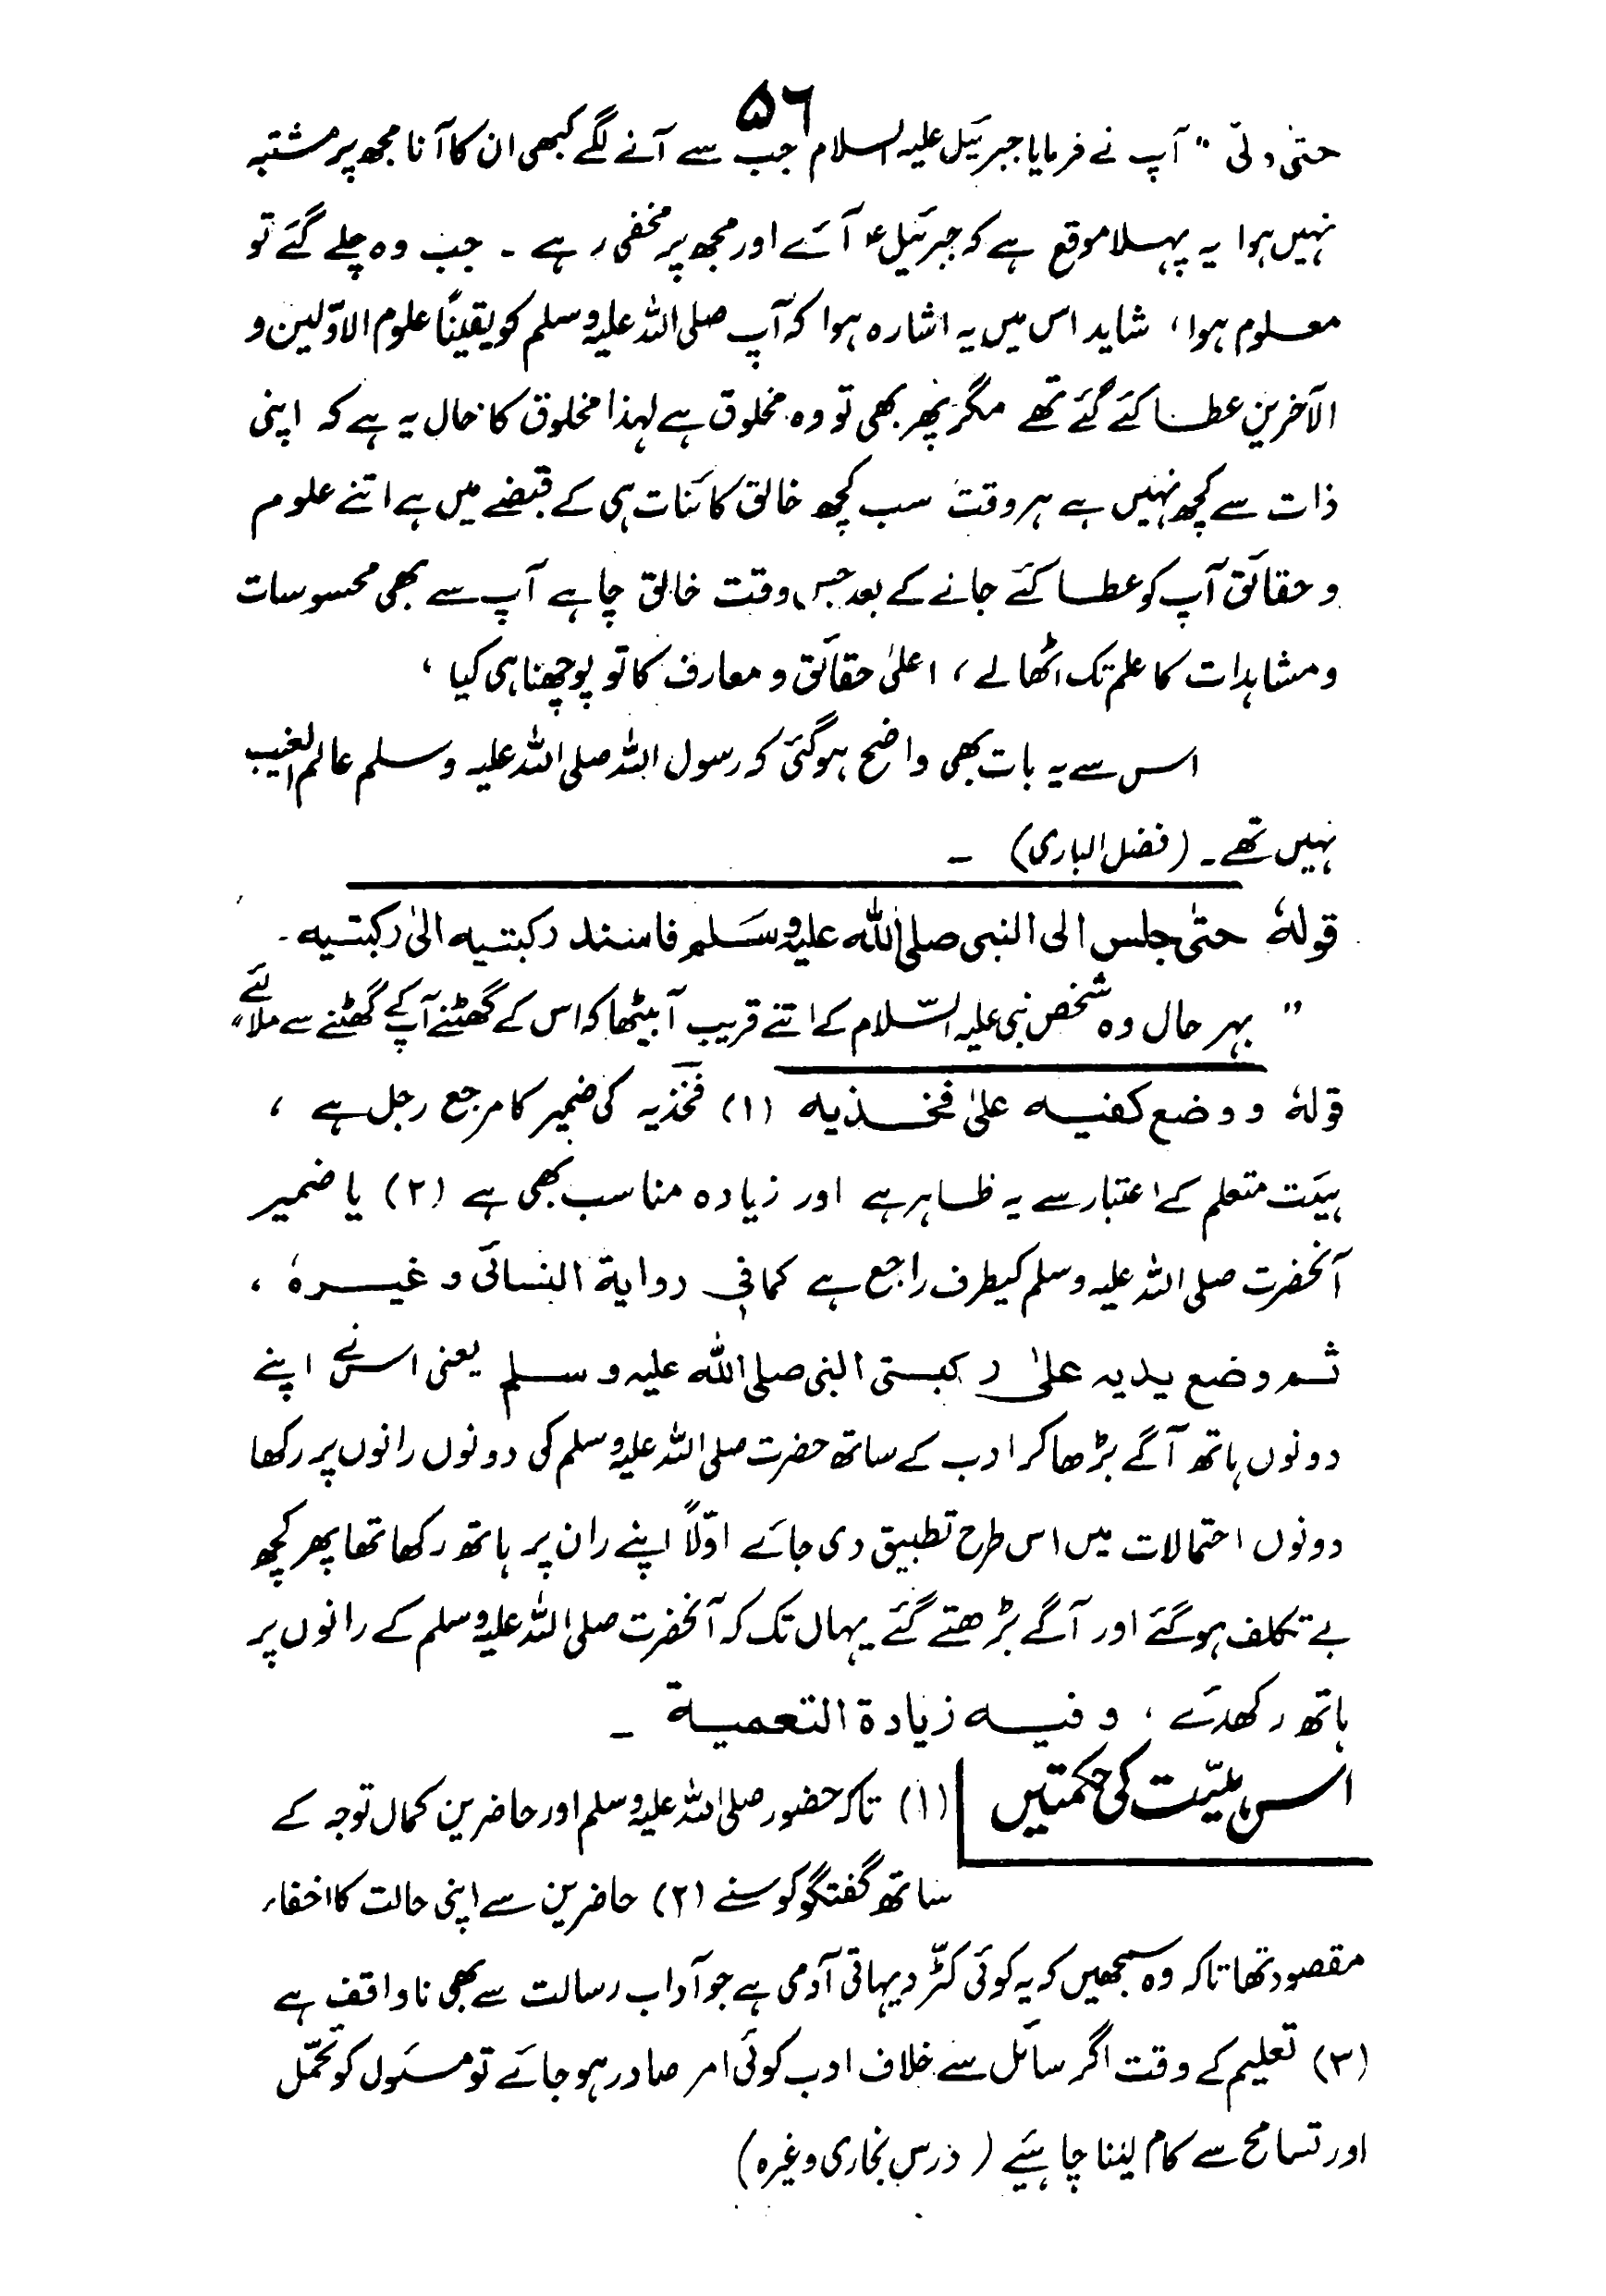 ۵٦
حتیٰ ولّی " آپ نے فرمایا جبرئیل علیہ السلام جب سے آنے لگے کبھی ان کا آنا مجھ پر مشتبہ
نہیں ہوا یہ پہلا موقع ہے کہ جبرئیل ؑ آئے اور مجھ پر مخفی رہے ۔ جب وہ چلے گئے تو
معلوم ہوا ، شاید اس میں یہ اشارہ ہوا کہ آپ صلی اللہ علیہ وسلم کو یقیناً علوم الاوّلین و
الآخرین عطا کئے گئے تھے مگر پھر بھی تو وہ مخلوق ہے لہذا مخلوق کا حال یہ ہے کہ اپنی
ذات سے کچھ نہیں ہے ہر وقت سب کچھ خالق کائنات ہی کے قبضے میں ہے اتنے علوم
و حقائق آپ کو عطا کئے جانے کے بعد جس وقت خالق چاہے آپ سے بھی محسوسات
و مشاہدات کا علم تک اٹھا لے ، اعلیٰ حقائق و معارف کا تو پوچھنا ہی کیا ،
اس سے یہ بات بھی واضح ہوگئی کہ رسول اللہ صلی اللہ علیہ وسلم عالم الغیب
نہیں تھے ۔ (فضل الباری) ۔
قولہٗ حتیٰ جلس الی النبی صلی اللہ علیہ وسَلم فاسند رکبتیہ الیٰ رکبتیہ ۔
" بہر حال وہ شخص نبی علیہ السّلام کے اتنے قریب آبیٹھا کہ اس کے گھٹنے آپ کے گھٹنے سے ملا لئے "
قولہٗ و وضع کفیہ علیٰ فخذیہ (۱) فَخِذیہ کی ضمیر کا مرجع رجل ہے ،
ہیئت متعلم کے اعتبار سے یہ ظاہر ہے اور زیادہ مناسب بھی ہے (۲) یا ضمیر
آنحضرت صلی اللہ علیہ وسلم کیطرف راجع ہے کما فی روایۃ النسائی و غیرہٗ ،
ثم وضع یدیہ علیٰ رکبتی النبی صلی اللہ علیہ وسلم یعنی اس نے اپنے
دونوں ہاتھ آگے بڑھا کر ادب کے ساتھ حضرت صلی اللہ علیہ وسلم کی دونوں رانوں پر رکھا
دونوں احتمالات میں اس طرح تطبیق دی جائے اوّلاً اپنے ران پر ہاتھ رکھا تھا پھر کچھ
بے تکلف ہوگئے اور آگے بڑھتے گئے یہاں تک کہ آنحضرت صلی اللہ علیہ وسلم کے رانوں پر
ہاتھ رکھدئے ، و فیہ زیادۃ التعمیۃ ۔
اس ہیئت کی حکمتیں (۱) تاکہ حضور صلی اللہ علیہ وسلم اور حاضرین کمال توجہ کے
ساتھ گفتگو کو سنے (۲) حاضرین سے اپنی حالت کا اخفاء
مقصود تھا تاکہ وہ سمجھیں کہ یہ کوئی کٹّر دیہاتی آدمی ہے جو آداب رسالت سے بھی ناواقف ہے
(۳) تعلیم کے وقت اگر سائل سے خلاف ادب کوئی امر صادر ہو جائے تو مسئول کو تحمّل
اور تسامح سے کام لینا چاہئیے ( درس بخاری وغیرہ )